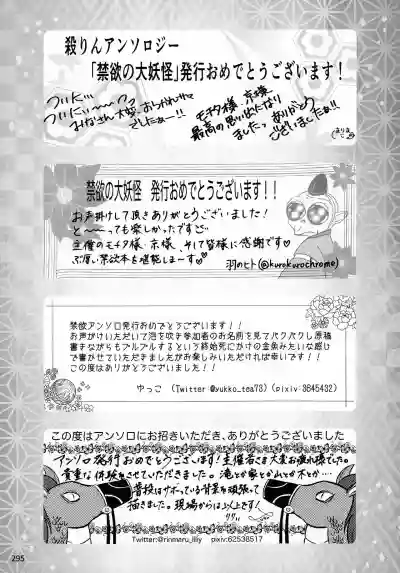 殺りんアンソロジー
「禁欲の大妖怪」発行おめでとうございます！
ついに…
ついに〜〜っ
みなさん大変おつかれさまでしたぁー!!
モチタ様、京様、
最高の思い出になりました
ありがとうございましたぁ!!
禁欲の大妖怪 発行おめでとうございます！！
お声掛けして頂きありがとうございました！
と〜〜っても楽しかったですっ
主催のモチタ様、京様、そして皆様に感謝です♡
ぶ厚い禁欲本を堪能しまーす♡
羽のヒト(@kurokurochrome)
禁欲アンソロ発行おめでとうございます！！
お声がけいただいて泡を吹き参加者のお名前を見てパクパクし原稿
書きながらもプルプルするという終始死にかけの金魚みたいな感じ
で書かせていただきましたがお楽しみいただければ幸いです！！
この度はありがとうございました！
ゆっこ （Twitter @yukko_tea73）（pixiv 3645432）
この度はアンソロにお招きいただき、ありがとうございました
アンソロ発行おめでとうございます！主催者さま大変お疲れ様でした。
貴重な体験をさせていただきました。滝とか家とか山とか木とか…
普段はサボっている背景を頑張って
描きました。現場からは以上です！
リリィ
Twitter:@rinmaru_lily pixiv:62538517
295